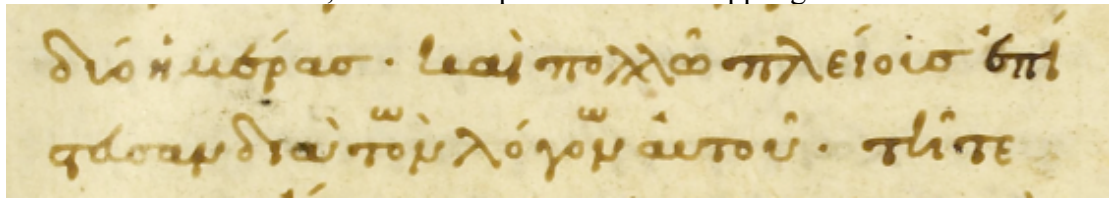 διό ἡμέρας · καὶ πολλῶ πλείοις ἐπί
στεσαν διὰ τὸν λόγον αὐτοῦ · τῆ τε